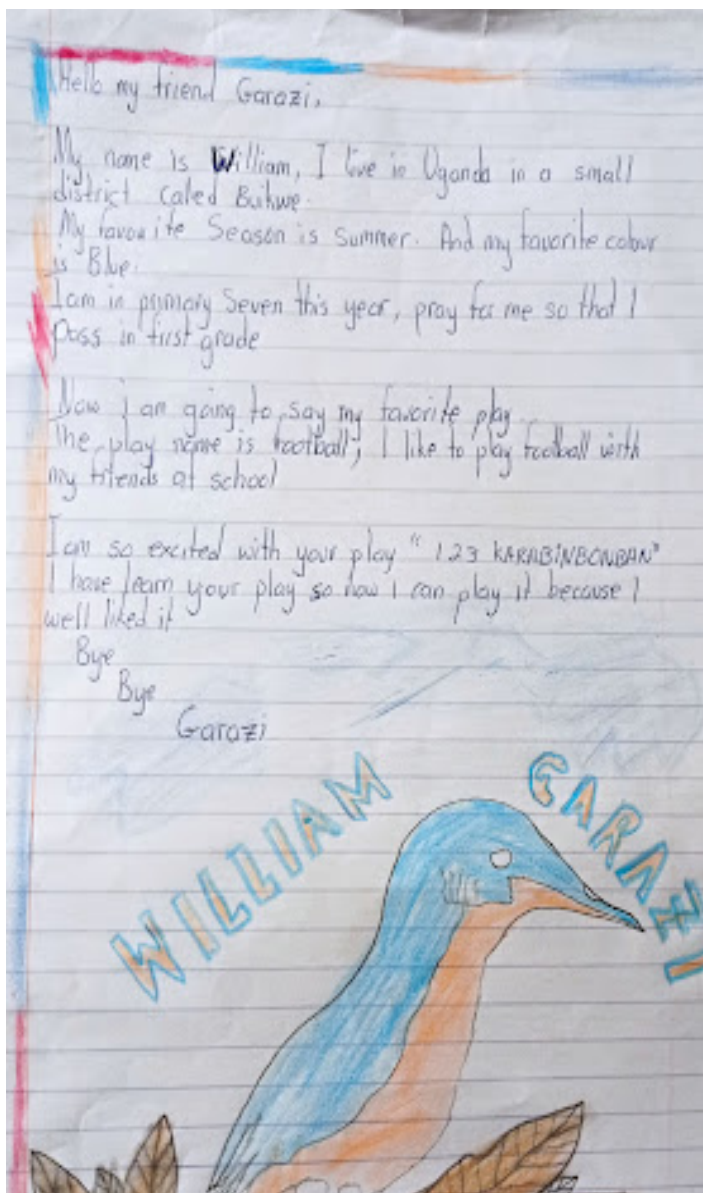 Hello my friend Garazi,
My name is William, I live in Uganda in a small
district called Buikwe.
My favourite Season is Summer. And my favorite colour
is Blue.
I am in primary Seven this year, pray for me so that I
pass in first grade
Now I am going to say my favorite play.
The play name is football; I like to play football with
my friends at school
I am so excited with your play " 123 KARABINBONBAN"
I have learn your play so now I can play it because I
well liked it
Bye
Bye
Garazi
WILLIAM
GARAZI